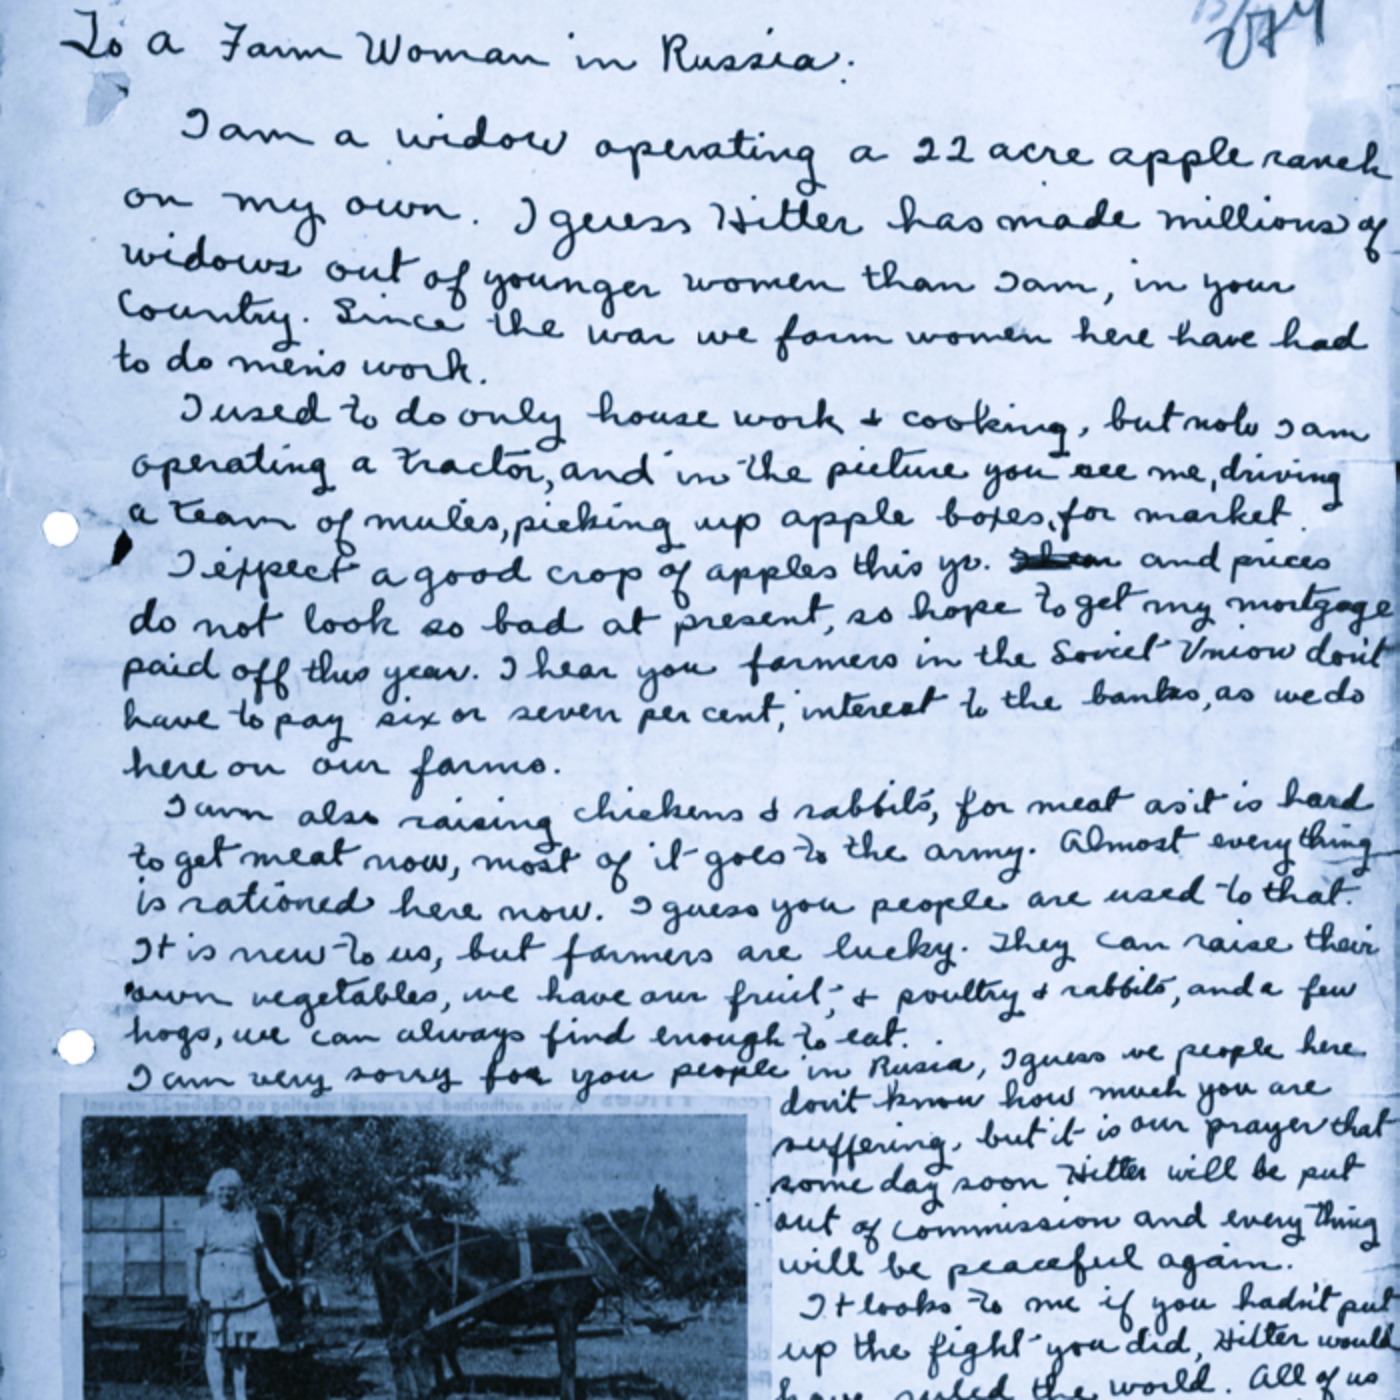 274
To a Farm Woman in Russia:
I am a widow operating a 22 acre apple ranch
on my own. I guess Hitler has made millions of
widows out of younger women than I am, in your
Country. Since the war we farm women here have had
to do men's work.
I used to do only house work & cooking, but now I am
operating a tractor, and in the picture you see me, driving
a team of mules, picking up apple boxes, for market.
I expect a good crop of apples this yr. and prices
do not look so bad at present, so hope to get my mortgage
paid off this year. I hear you farmers in the Soviet Union don't
have to pay six or seven per cent, interest to the banks, as we do
here on our farms.
I am also raising chickens & rabbits, for meat as it is hard
to get meat now, most of it goes to the army. Almost every thing
is rationed here now. I guess you people are used to that.
It is new to us, but farmers are lucky. They can raise their
own vegetables, we have our fruit, & poultry & rabbits, and a few
hogs, we can always find enough to eat.
I am very sorry for you people in Rusia, I guess we people here
don't know how much you are
suffering, but it is our prayer that
some day soon Hitler will be put
out of commission and every thing
will be peaceful again.
It looks to me if you hadn't put
up the fight you did, Hitler would
have ruled the world. All of us